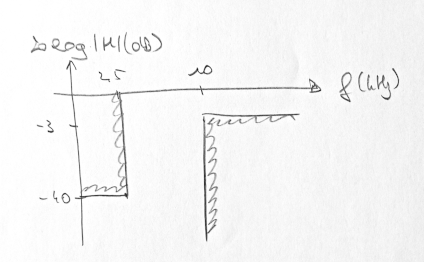 20log|H|(dB)
2,5
10
f(kHz)
-3
-40